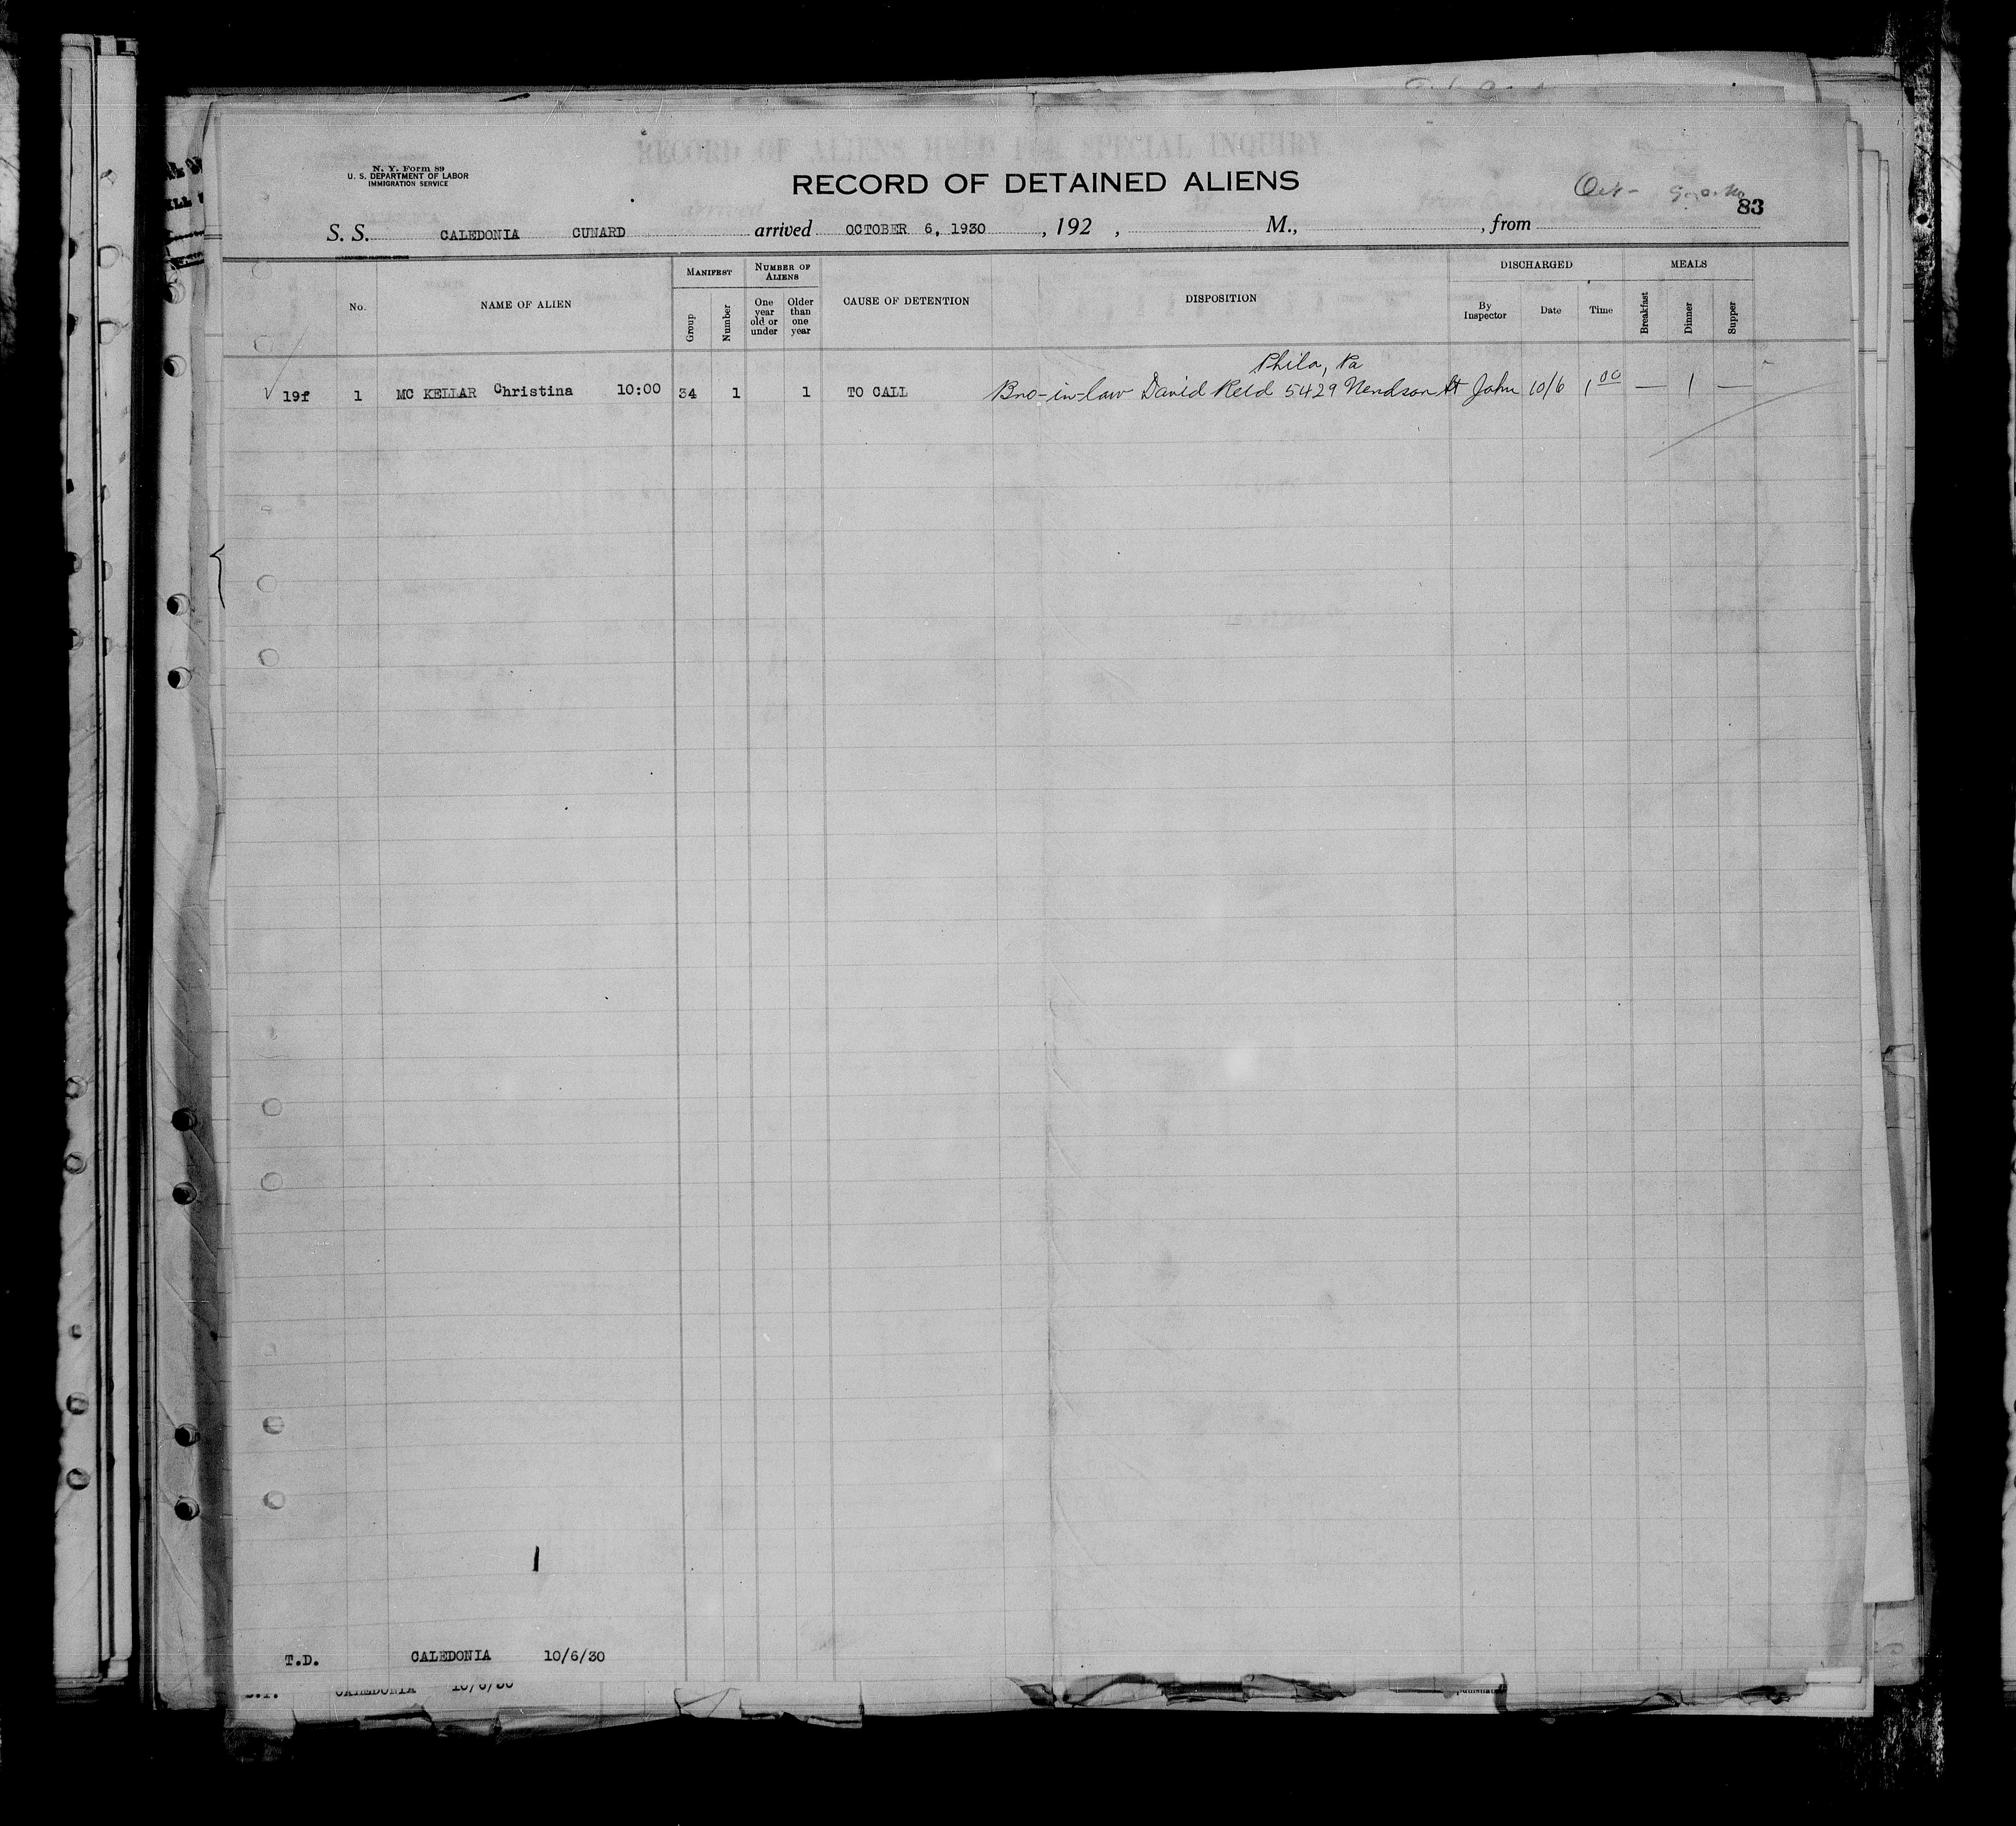 RECORD OF ALIENS HELD FOR SPECIAL INQUIRY
N. Y. Form 89
U. S. DEPARTMENT OF LABOR
IMMIGRATION SERVICE
RECORD OF DETAINED ALIENS
83
S. S. CALEDONIA CUNARD arrived OCTOBER 6, 1930, 192 , M., , from
MANIFEST NUMBER OF ALIENS DISCHARGED MEALS
No. NAME OF ALIEN Group Number One year old or under Older than one year CAUSE OF DETENTION DISPOSITION By Inspector Date Time Breakfast Dinner Supper
Phila, Pa
19f 1 MC KELLAR Christina 10:00 34 1 1 TO CALL Bro-in-law David Reid 5429 St John 10/6 1 00 — 1 —
1
T.D. CALEDONIA 10/6/30
CALEDONIA 10/6/30